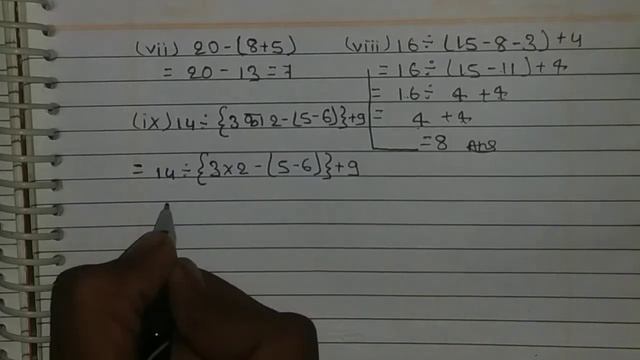 (vii) 20-(8+5)
= 20-13=7
(viii) 16÷(15-8-3)+4
= 16÷(15-11)+4
= 16÷ 4 +4
= 4 +4
=8 Ans
(ix) 14÷{3 का 2-(5-6)}+9
= 14÷{3×2-(5-6)}+9